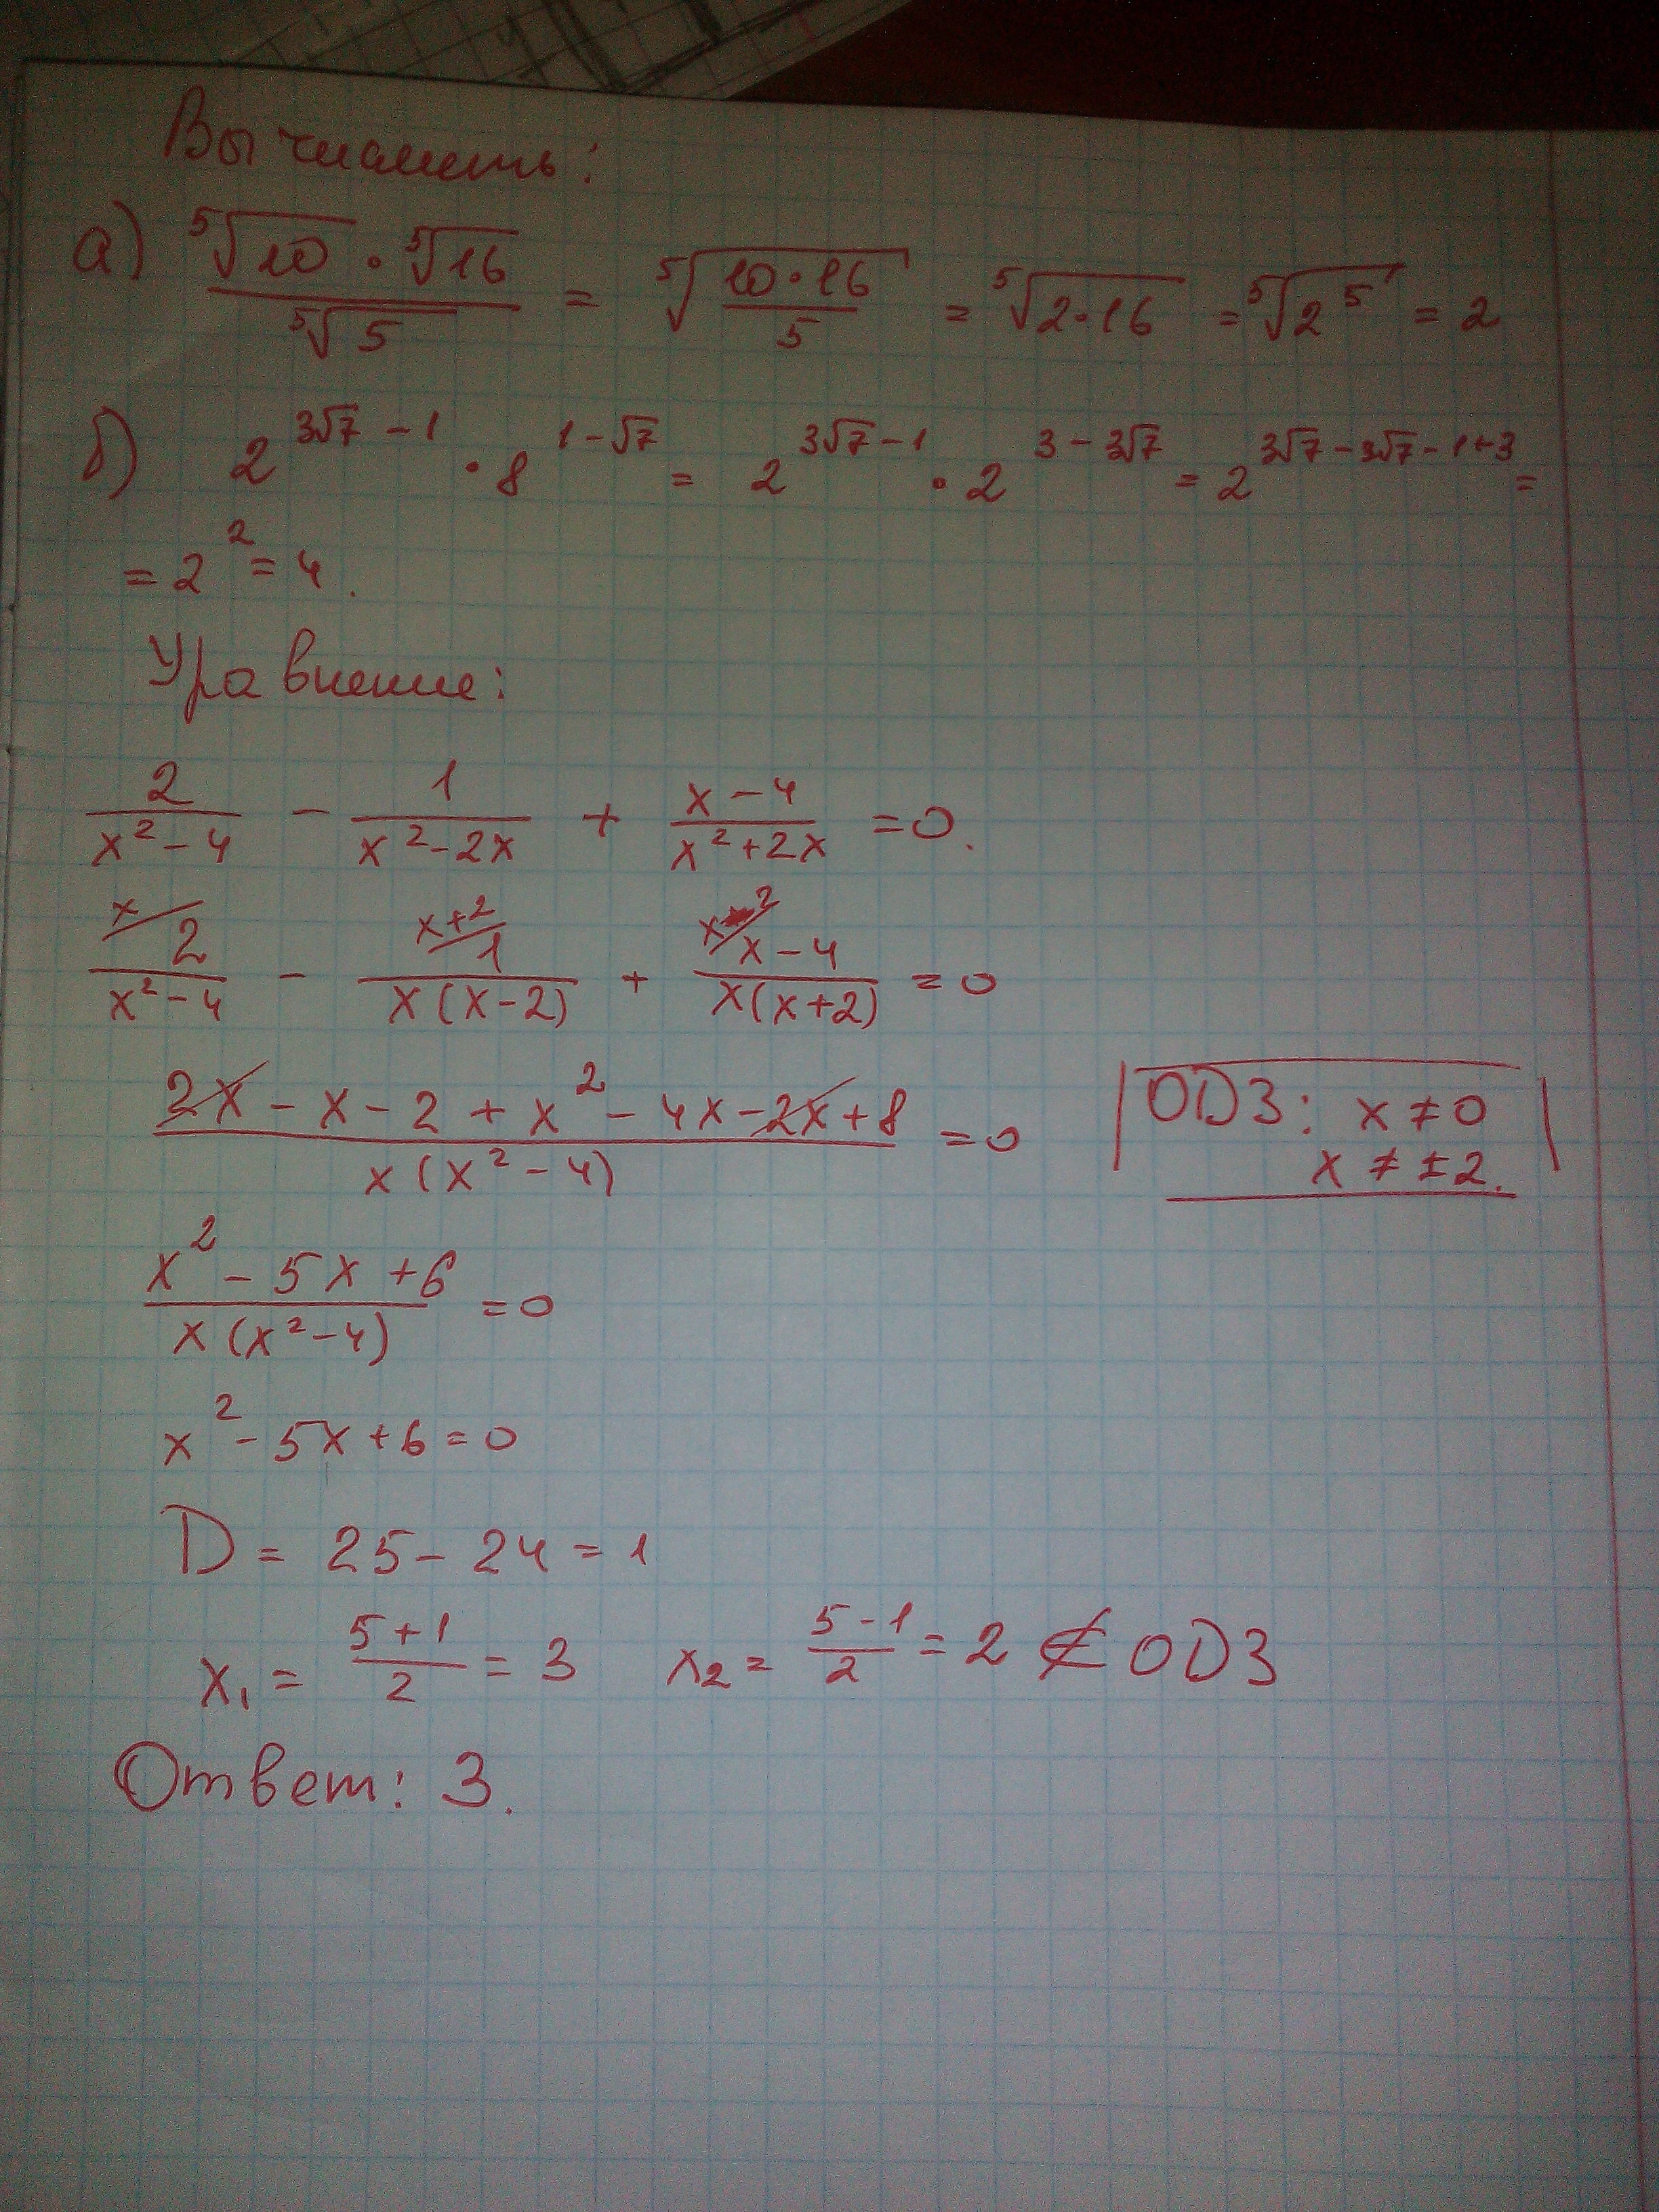 Вычислить:
а) ⁵√10 · ⁵√16 / ⁵√5 = ⁵√(10·16 / 5) = ⁵√(2·16) = ⁵√(2⁵) = 2
б) 2^(3√7 − 1) · 8^(1 − √7) = 2^(3√7 − 1) · 2^(3 − 3√7) = 2^(3√7 − 3√7 − 1 + 3) =
= 2² = 4.
Уравнение:
2/(x² − 4) − 1/(x² − 2x) + (x − 4)/(x² + 2x) = 0.
x/ 2/(x² − 4) − x+2/ 1/(x(x − 2)) + x−2/ (x − 4)/(x(x + 2)) = 0
(2x − x − 2 + x² − 4x − 2x + 8)/(x(x² − 4)) = 0
ОДЗ: x ≠ 0
x ≠ ±2.
(x² − 5x + 6)/(x(x² − 4)) = 0
x² − 5x + 6 = 0
D = 25 − 24 = 1
x₁ = (5 + 1)/2 = 3 x₂ = (5 − 1)/2 = 2 ∉ ОДЗ
Ответ: 3.